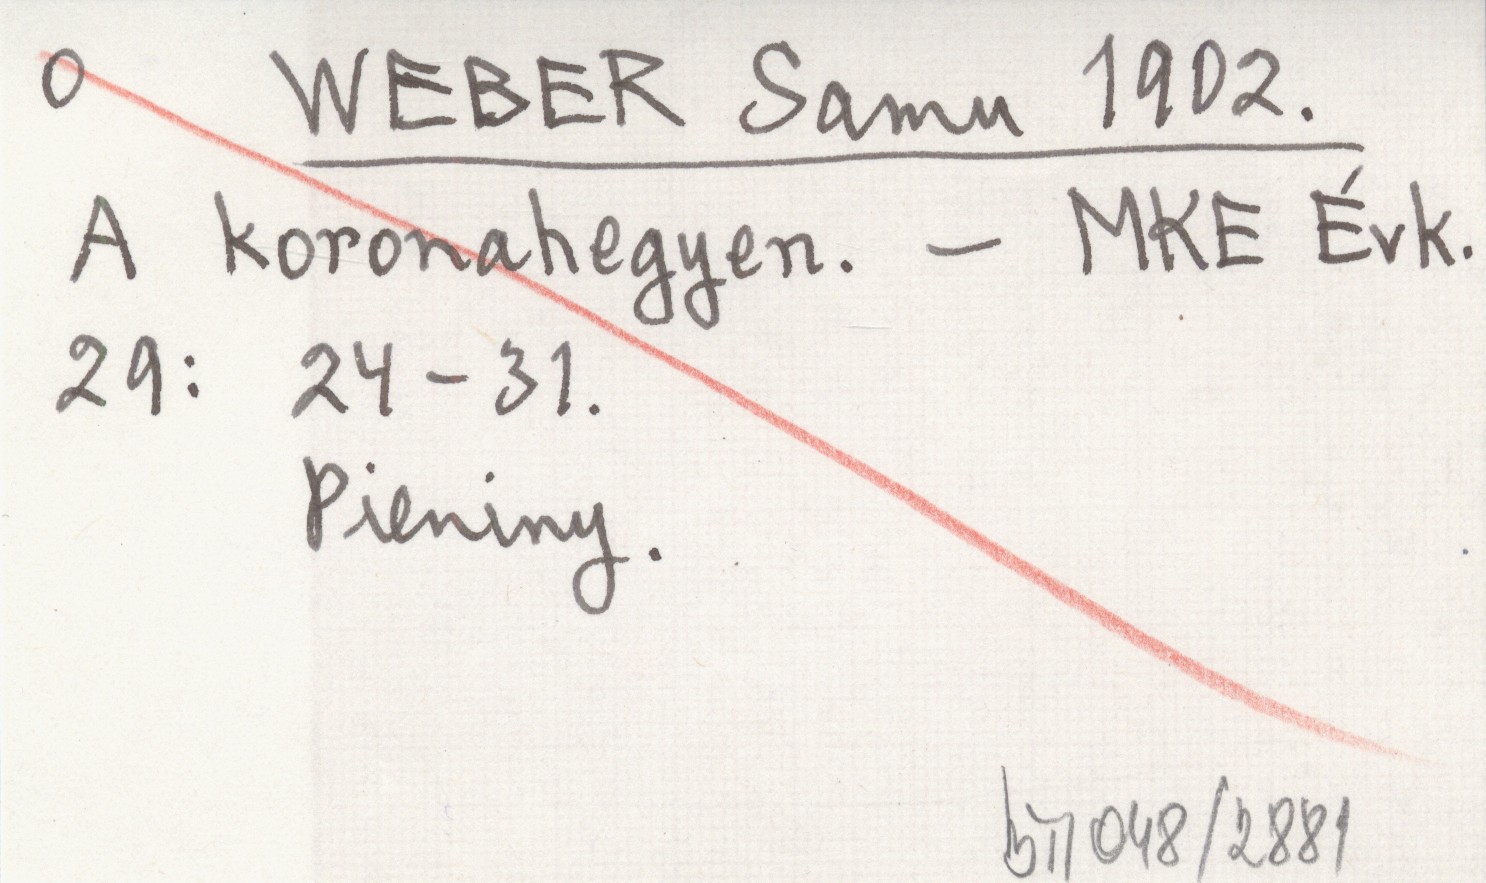 O WEBER Samu 1902.
A koronahegyen. – MKE Évk.
29: 24-31.
Pieniny.
048/2881